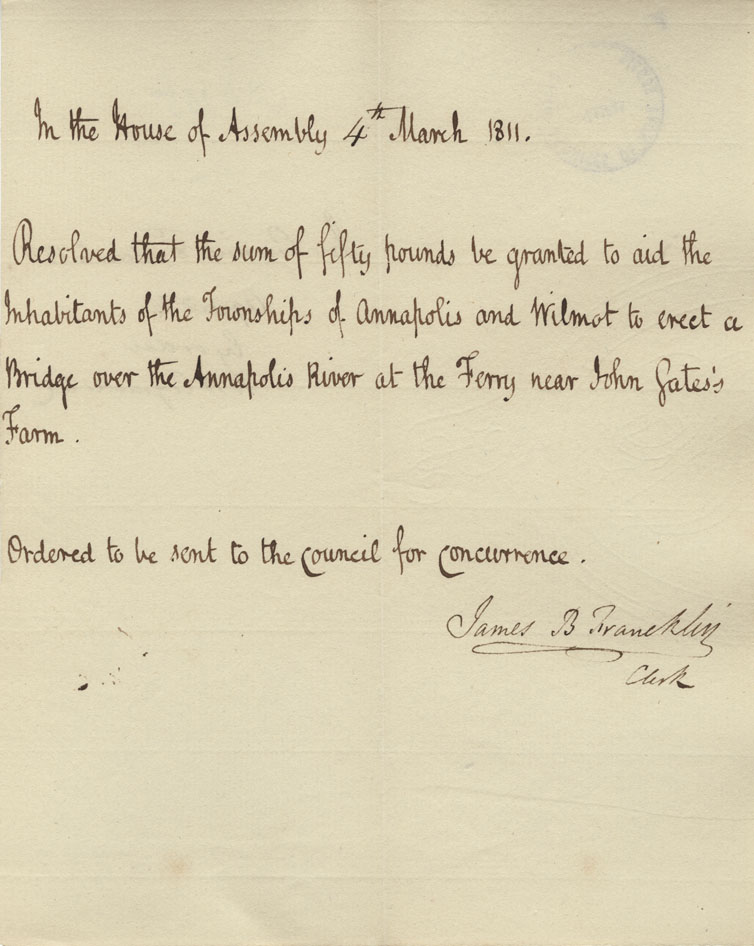 In the House of Assembly 4th March 1811.
Resolved that the sum of fifty pounds be granted to aid the
Inhabitants of the Townships of Annapolis and Wilmot to erect a
Bridge over the Annapolis River at the Ferry near John Gates's
Farm.
Ordered to be sent to the Council for concurrence.
James B Francklin
Clerk